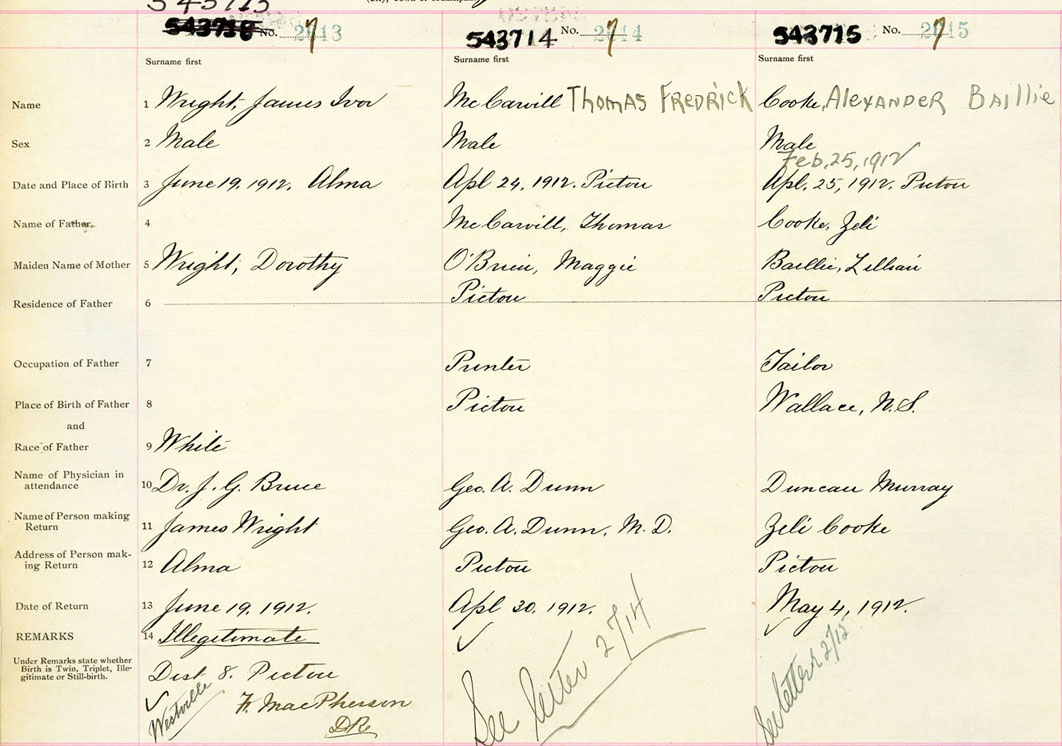 543713
543714
543715
No. 2713
No. 2714
No. 2715
Surname first
Surname first
Surname first
Name 1 Wright, James Ivor McCarvill Thomas Fredrick Cooke, Alexander Baillie
Sex 2 Male Male Male
Feb, 25, 1912
Date and Place of Birth 3 June 19, 1912. Alma Apl 24, 1912. Pictou Apl. 25, 1912. Pictou
Name of Father 4 McCarvill, Thomas Cooke, Zeli
Maiden Name of Mother 5 Wright, Dorothy O'Brien, Maggie Baillie, Lillian
Residence of Father 6 Pictou Pictou
Occupation of Father 7 Printer Tailor
Place of Birth of Father 8 Pictou Wallace, N.S.
and
Race of Father 9 White
Name of Physician in
attendance 10 Dr. J. G. Bruce Geo. A. Dunn Duncan Murray
Name of Person making
Return 11 James Wright Geo. A. Dunn, M.D. Zeli Cooke
Address of Person mak-
ing Return 12 Alma Pictou Pictou
Date of Return 13 June 19, 1912. Apl 30, 1912. May 4, 1912.
REMARKS 14 Illegitimate
Under Remarks state whether
Birth is Twin, Triplet, Ille-
gitimate or Still-birth.
Dist 8. Pictou
Westville
F. MacPherson
D.R.
See letter 2714
See letter 2715